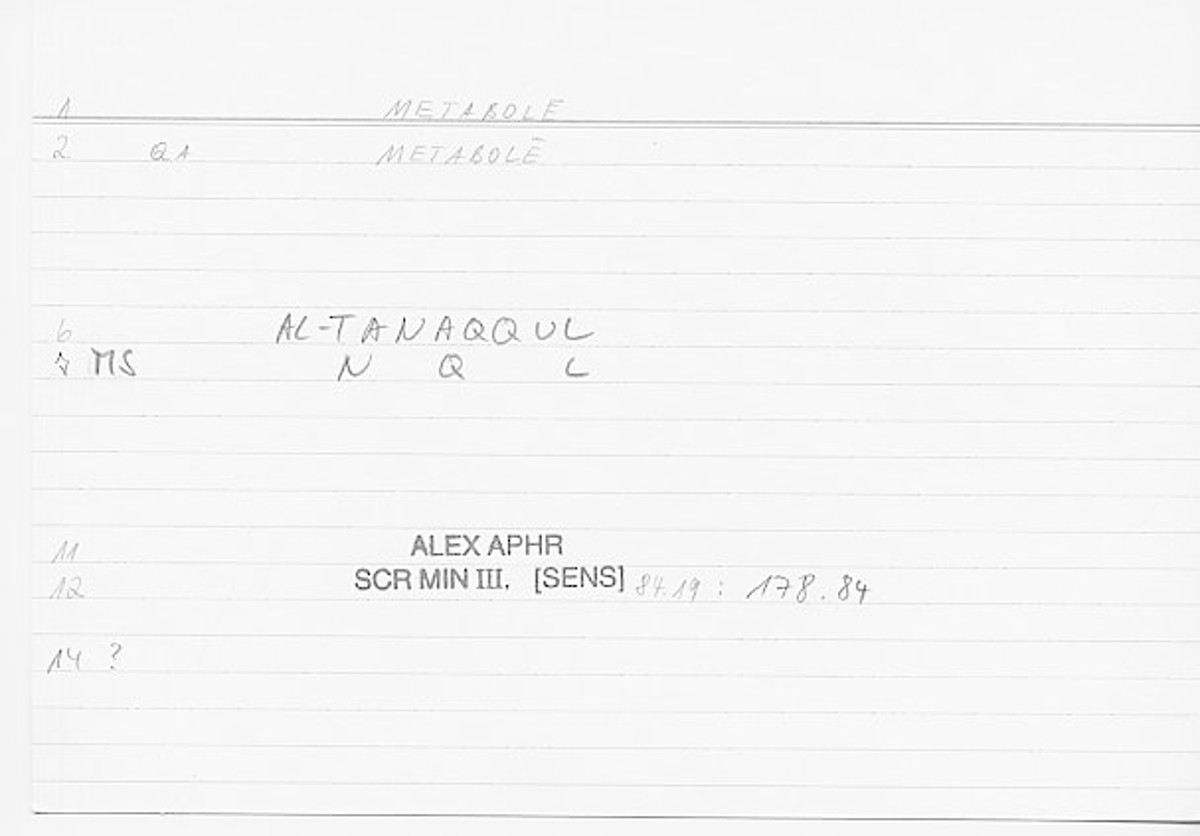 1 METABOLĒ
2 QA METABOLĒ
6 AL-TANAQQUL
7 MS N Q L
11 ALEX APHR
12 SCR MIN III. [SENS] 84.19 : 178.84
14 ?